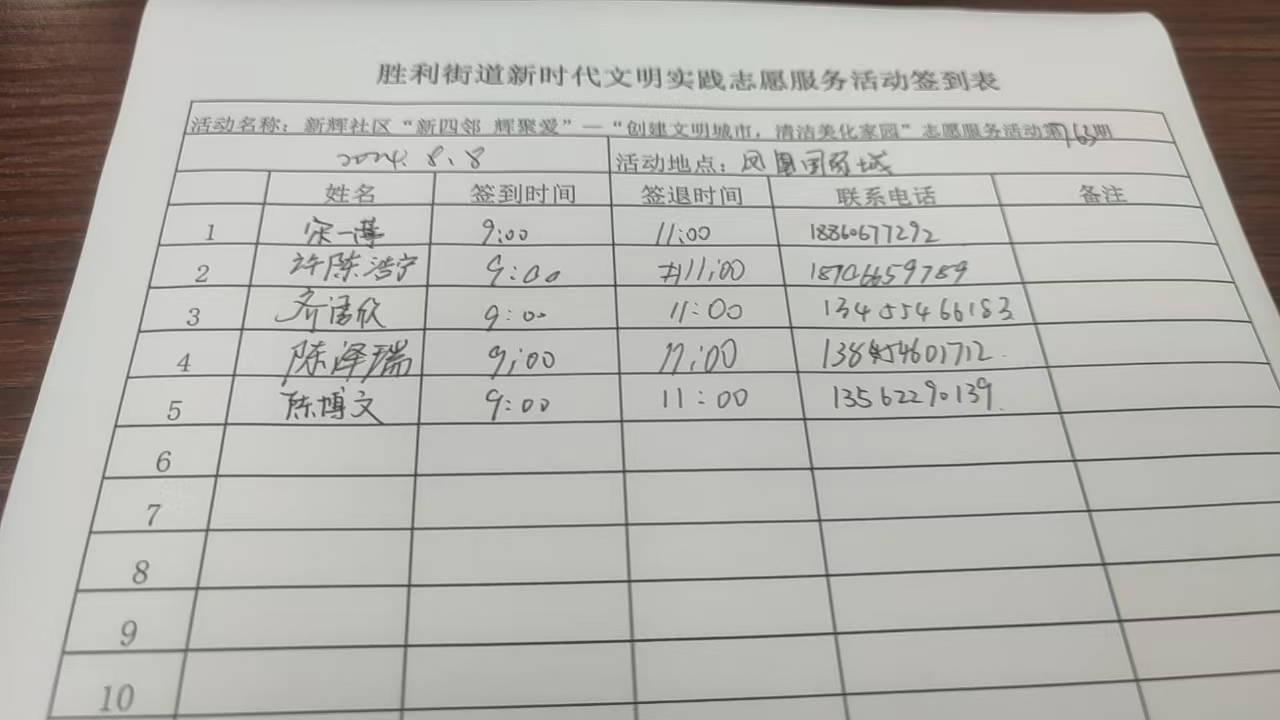 胜利街道新时代文明实践志愿服务活动签到表
活动名称：新辉社区“新四邻 辉聚爱”—“创建文明城市，清洁美化家园”志愿服务活动第 63期
2024.8.8 活动地点：凤凰国际城
姓名 签到时间 签退时间 联系电话 备注
1 宋一 9:00 11:00 18860677292
2 许陈浩宁 9:00 11:00 18706659789
3 齐 欣 9:00 11:00 13455466183
4 陈泽瑞 9:00 11:00 4601712
5 陈博文 9:00 11:00 13562290139
6
7
8
9
10